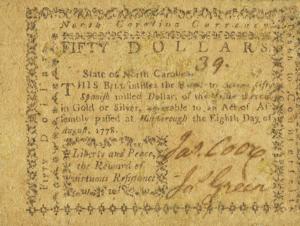 North Carolina Currency
FIFTY DOLLARS.
39.
State of North Carolina
THIS BILL intitles the Bearer to receive fifty
Spanish milled Dollars, or the Value thereof
in Gold or Silver, agreeable to an Act of As-
sembly passed at Hilsborough the Eighth Day of
August, 1778.
Liberty and Peace,
the Reward of
virtuous Resistance
Jas. Coor
Js Green